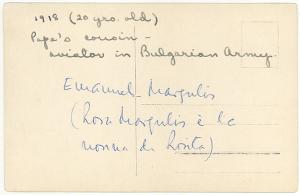 1918 (20 yrs. old)
Papa's cousin -
aviator in Bulgarian Army.
Emanuel Margulis
(Rosa Margulis è la
nonna di Rosita)